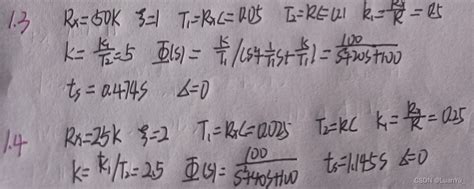 1.3 Rx=50K ξ=1 T₁=RxC=0.05 T₂=RC=0.1 k₁=Rx/R=0.5
K=K₁/T₂=5 Φ(s)=K/T₁/(s²+1/T₁s+K/T₁)=100/s²+20s+100
ts=0.474s δ=0
1.4 Rx=25K ξ=2 T₁=RxC=0.025 T₂=RC K₁=Rx/R=0.25
K=K₁/T₂=2.5 Φ(s)=100/s²+40s+100 ts=1.145s δ=0
CSDN @LuanYu_